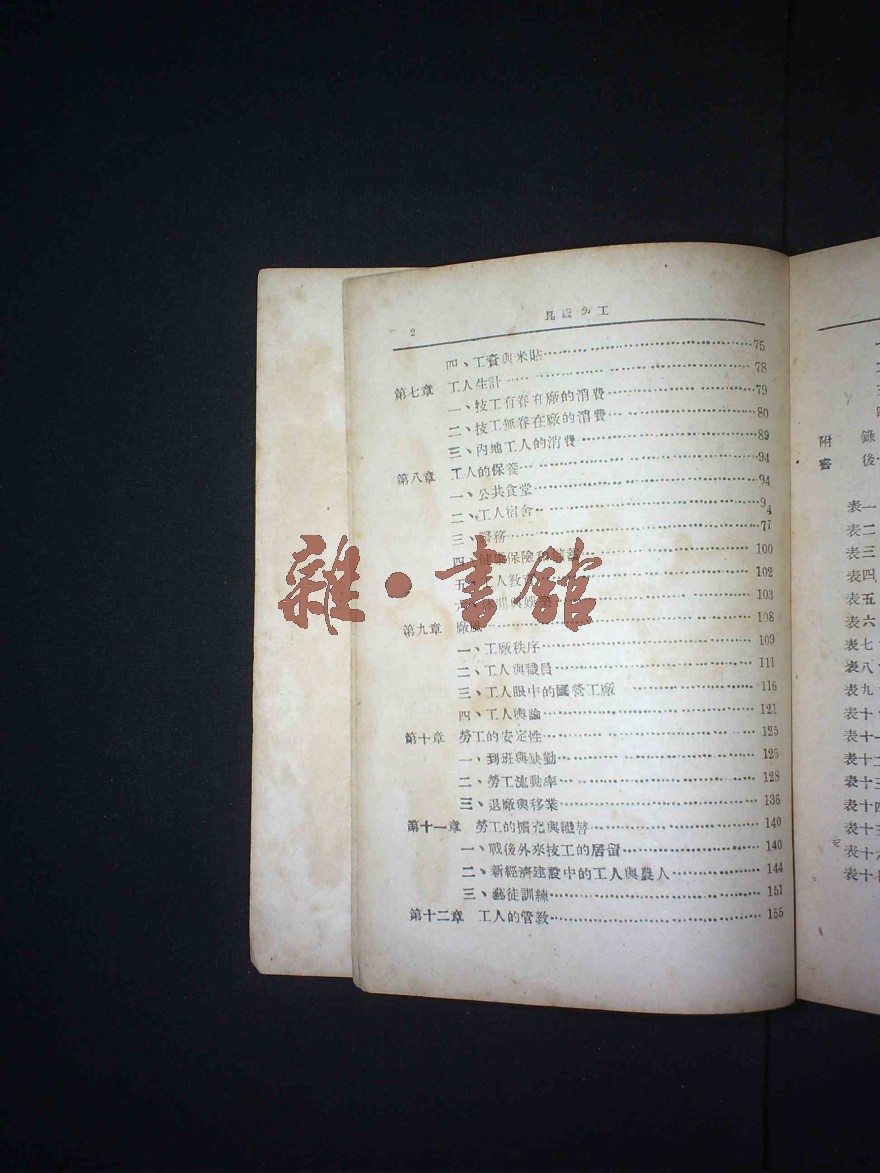 昆廠勞工
2
四、工資與米貼 75
第七章 工人生計 78
一、技工有眷在廠的消費 79
二、技工無眷在廠的消費 80
三、內地工人的消費 89
第八章 工人的保養 94
一、公共食堂 94
二、工人宿舍 94
三、醫務 77
四、健康保險和儲蓄 100
五、工人教育 102
與娛樂 103
第九章 廠風 108
一、工廠秩序 109
二、工人與職員 111
三、工人眼中的國營工廠 116
四、工人輿論 121
第十章 勞工的安定性 125
一、到班與缺勤 125
二、勞工流動率 128
三、退廠與移業 136
第十一章 勞工的擴充與繼替 140
一、戰後外來技工的居留 140
二、新經濟建設中的工人與農人 144
三、藝徒訓練 151
第十二章 工人的管教 155
附 錄
書 後
表一
表二
表三
表四
表五
表六
表七
表八
表九
表十
表十一
表十二
表十三
表十四
表十五
表十六
表十七
雜·書館